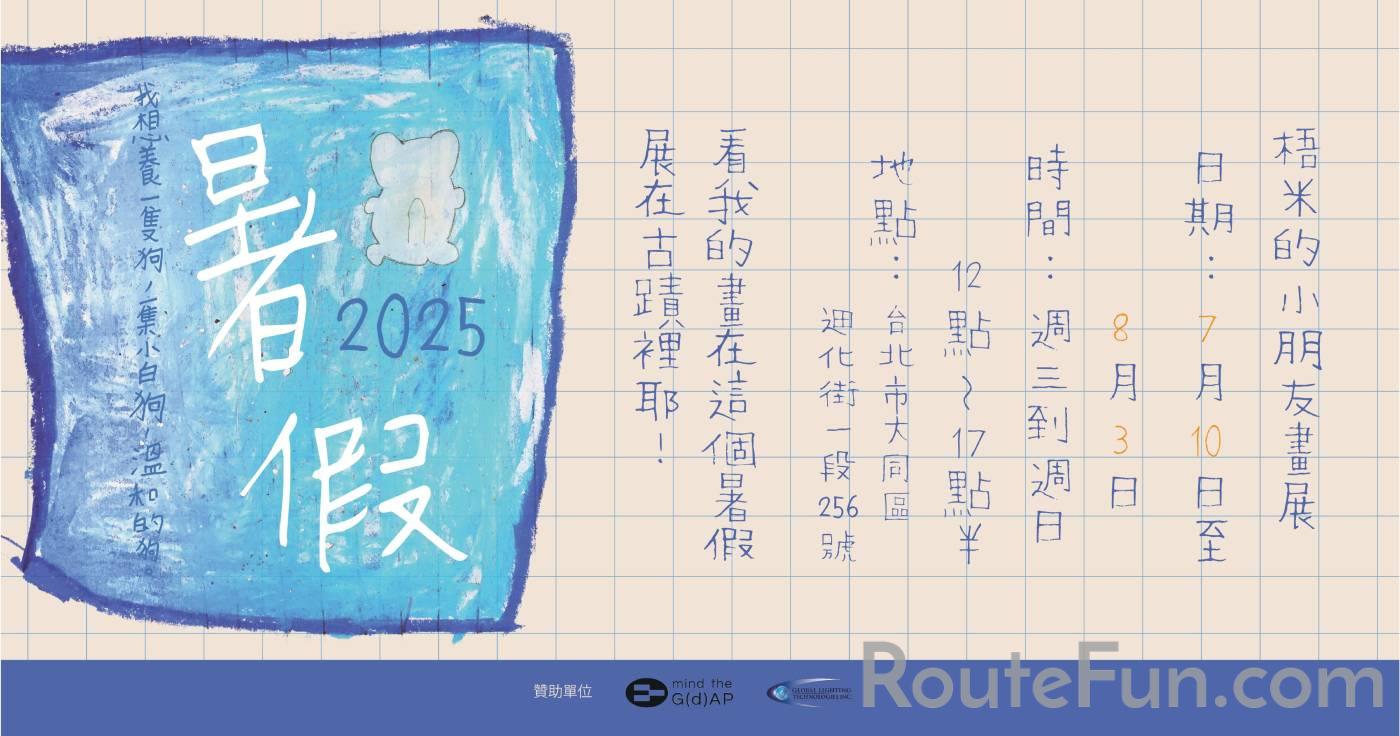 梧米的小朋友畫展
日期：7月10日至
8月3日
時間：週三到週日
12點~17點半
地點：台北市大同區
迪化街一段256號
看我的畫在這個暑假
展在古蹟裡耶！
暑假
2025
我想養一隻狗，一集小白狗，溫和的狗。
贊助單位
mind the
G(d)AP
GLOBAL LIGHTING
TECHNOLOGIES INC.
RouteFun.com